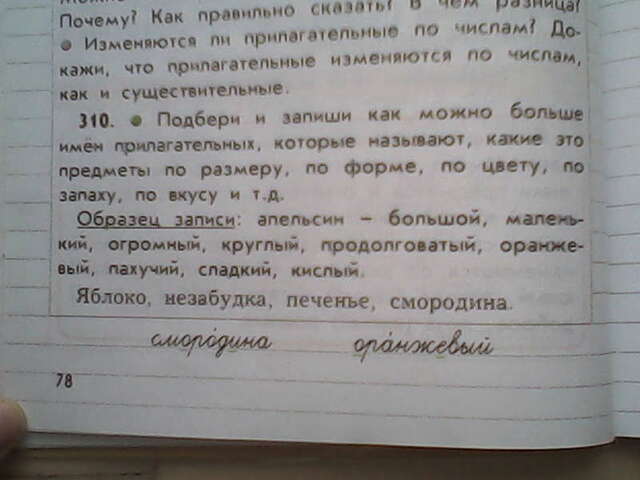 Почему? Как правильно сказать? В чём разница?
● Изменяются ли прилагательные по числам? До-
кажи, что прилагательные изменяются по числам,
как и существительные.
310. ● Подбери и запиши как можно больше
имён прилагательных, которые называют, какие это
предметы по размеру, по форме, по цвету, по
запаху, по вкусу и т.д.
Образец записи: апельсин – большой, малень-
кий, огромный, круглый, продолговатый, оранже-
вый, пахучий, сладкий, кислый.
Яблоко, незабудка, печенье, смородина.
сморо́дина ора́нжевый
78